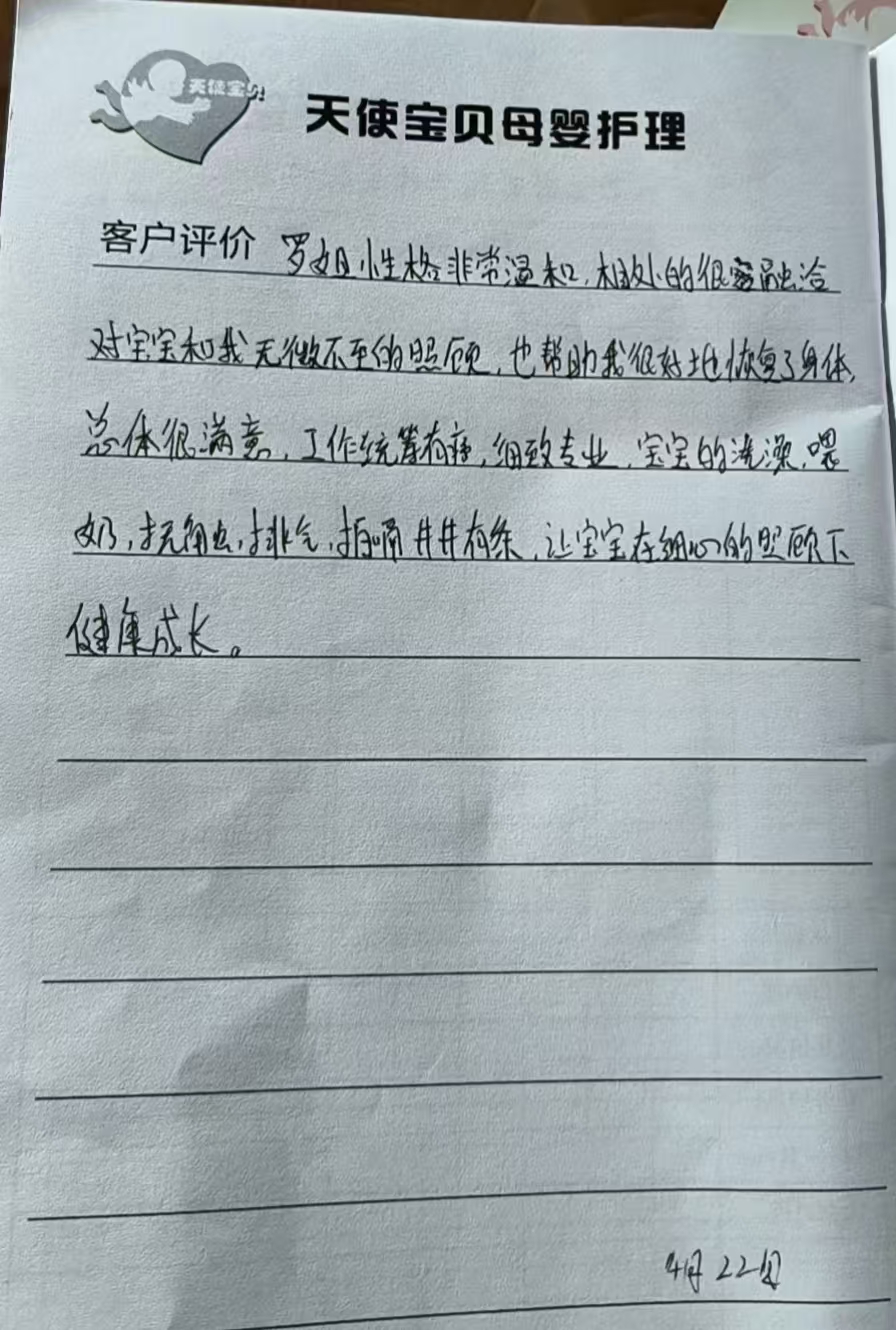 天使宝贝
天使宝贝母婴护理
客户评价 罗姐性格非常温和,相处的很融洽
对宝宝和我无微不至的照顾,也帮助我很好地恢复了身体,
总体很满意,工作统筹有序,细致专业,宝宝的洗澡、喂
奶,抚触,排气,拍嗝井井有条,让宝宝在细心的照顾下
健康成长。
4月22日